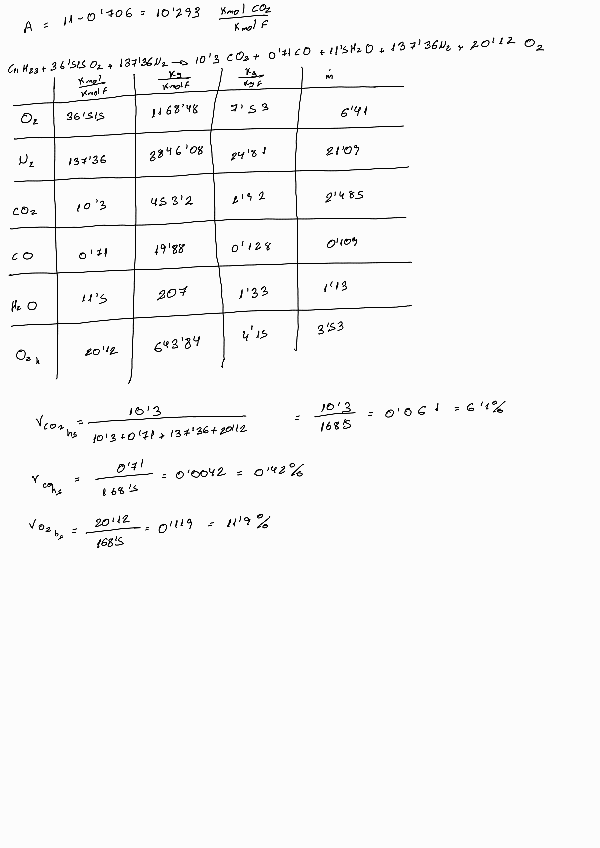 A = 11-0'706 = 10'293 Kmol CO2 / Kmol F
C11 H23 + 36'515 O2 + 137'36 N2 → 10'3 CO2 + 0'71 CO + 11'5 H2O + 137'36 N2 + 20'112 O2
Kmol/Kmol F Kg/Kmol F Kg/Kg F ṁ
O2 36'515 1168'48 7'53 6'41
N2 137'36 3846'08 24'81 21'09
CO2 10'3 453'2 2'92 2'485
CO 0'71 19'88 0'128 0'109
H2O 11'5 207 1'33 1'13
O2 h 20'12 643'84 4'15 3'53
r CO2 hs = 10'3 / 10'3+0'71+137'36+20'12 = 10'3 / 168'5 = 0'061 = 6'1%
r CO hs = 0'71 / 168'5 = 0'0042 = 0'42%
r O2 hs = 20'12 / 168'5 = 0'119 = 11'9%